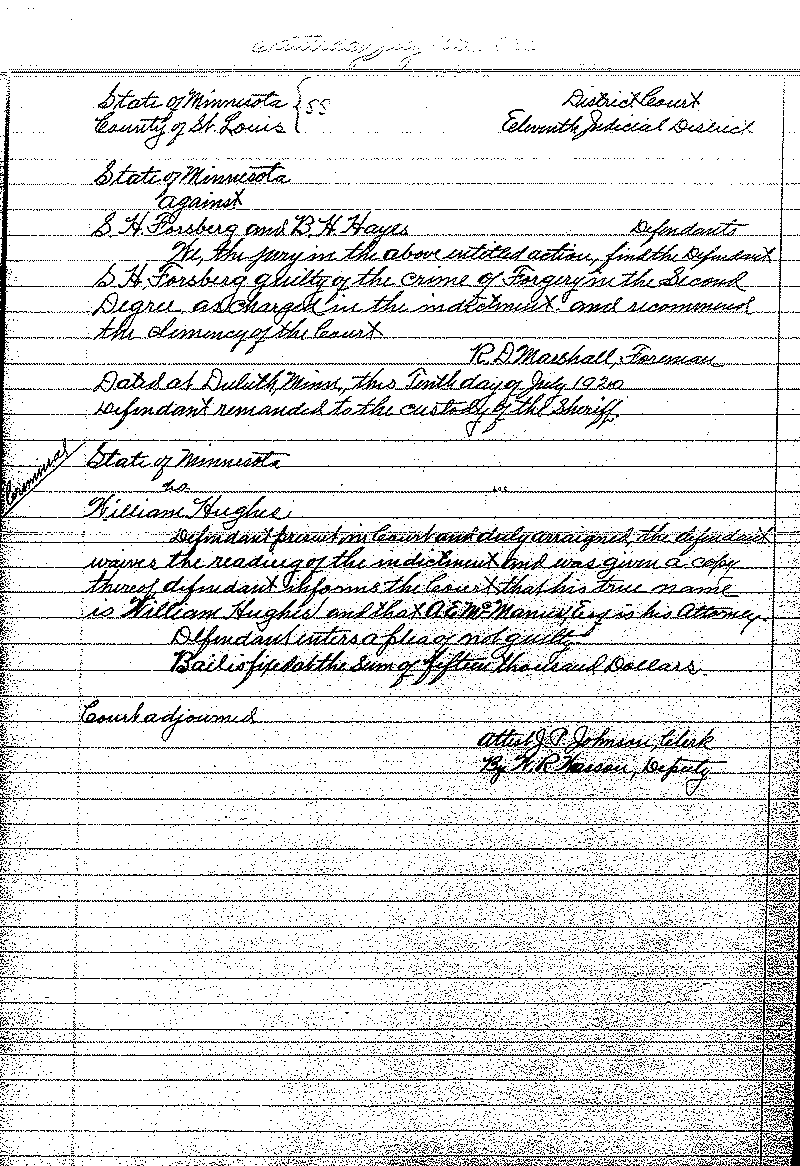 Saturday July
State of Minnesota } SS District Court
County of St. Louis Eleventh Judicial District
State of Minnesota
against
S. H. Forsberg and B. H. Hayes Defendants
We, the jury in the above entitled action, find the Defendant
S. H. Forsberg guilty of the crime of Forgery in the Second
Degree, as charged in the indictment and recommend
the clemency of the Court
R. D. Marshall, Foreman
Dated at Duluth, Minn, this Tenth day of July 1920
Defendant remanded to the custody of the Sheriff.
Criminal
State of Minnesota
vs
William Hughes
Defendant present in Court and duly arraigned, the defendant
waives the reading of the indictment and was given a copy
thereof defendant informs the Court that his true name
is William Hughes and that A. E. McManus, Esq is his Attorney.
Defendant enters a plea of not guilty
Bail is fixed at the sum of fifteen thousand Dollars.
Court adjourned
Attest J. P. Johnson, Clerk
By W. R. Deputy